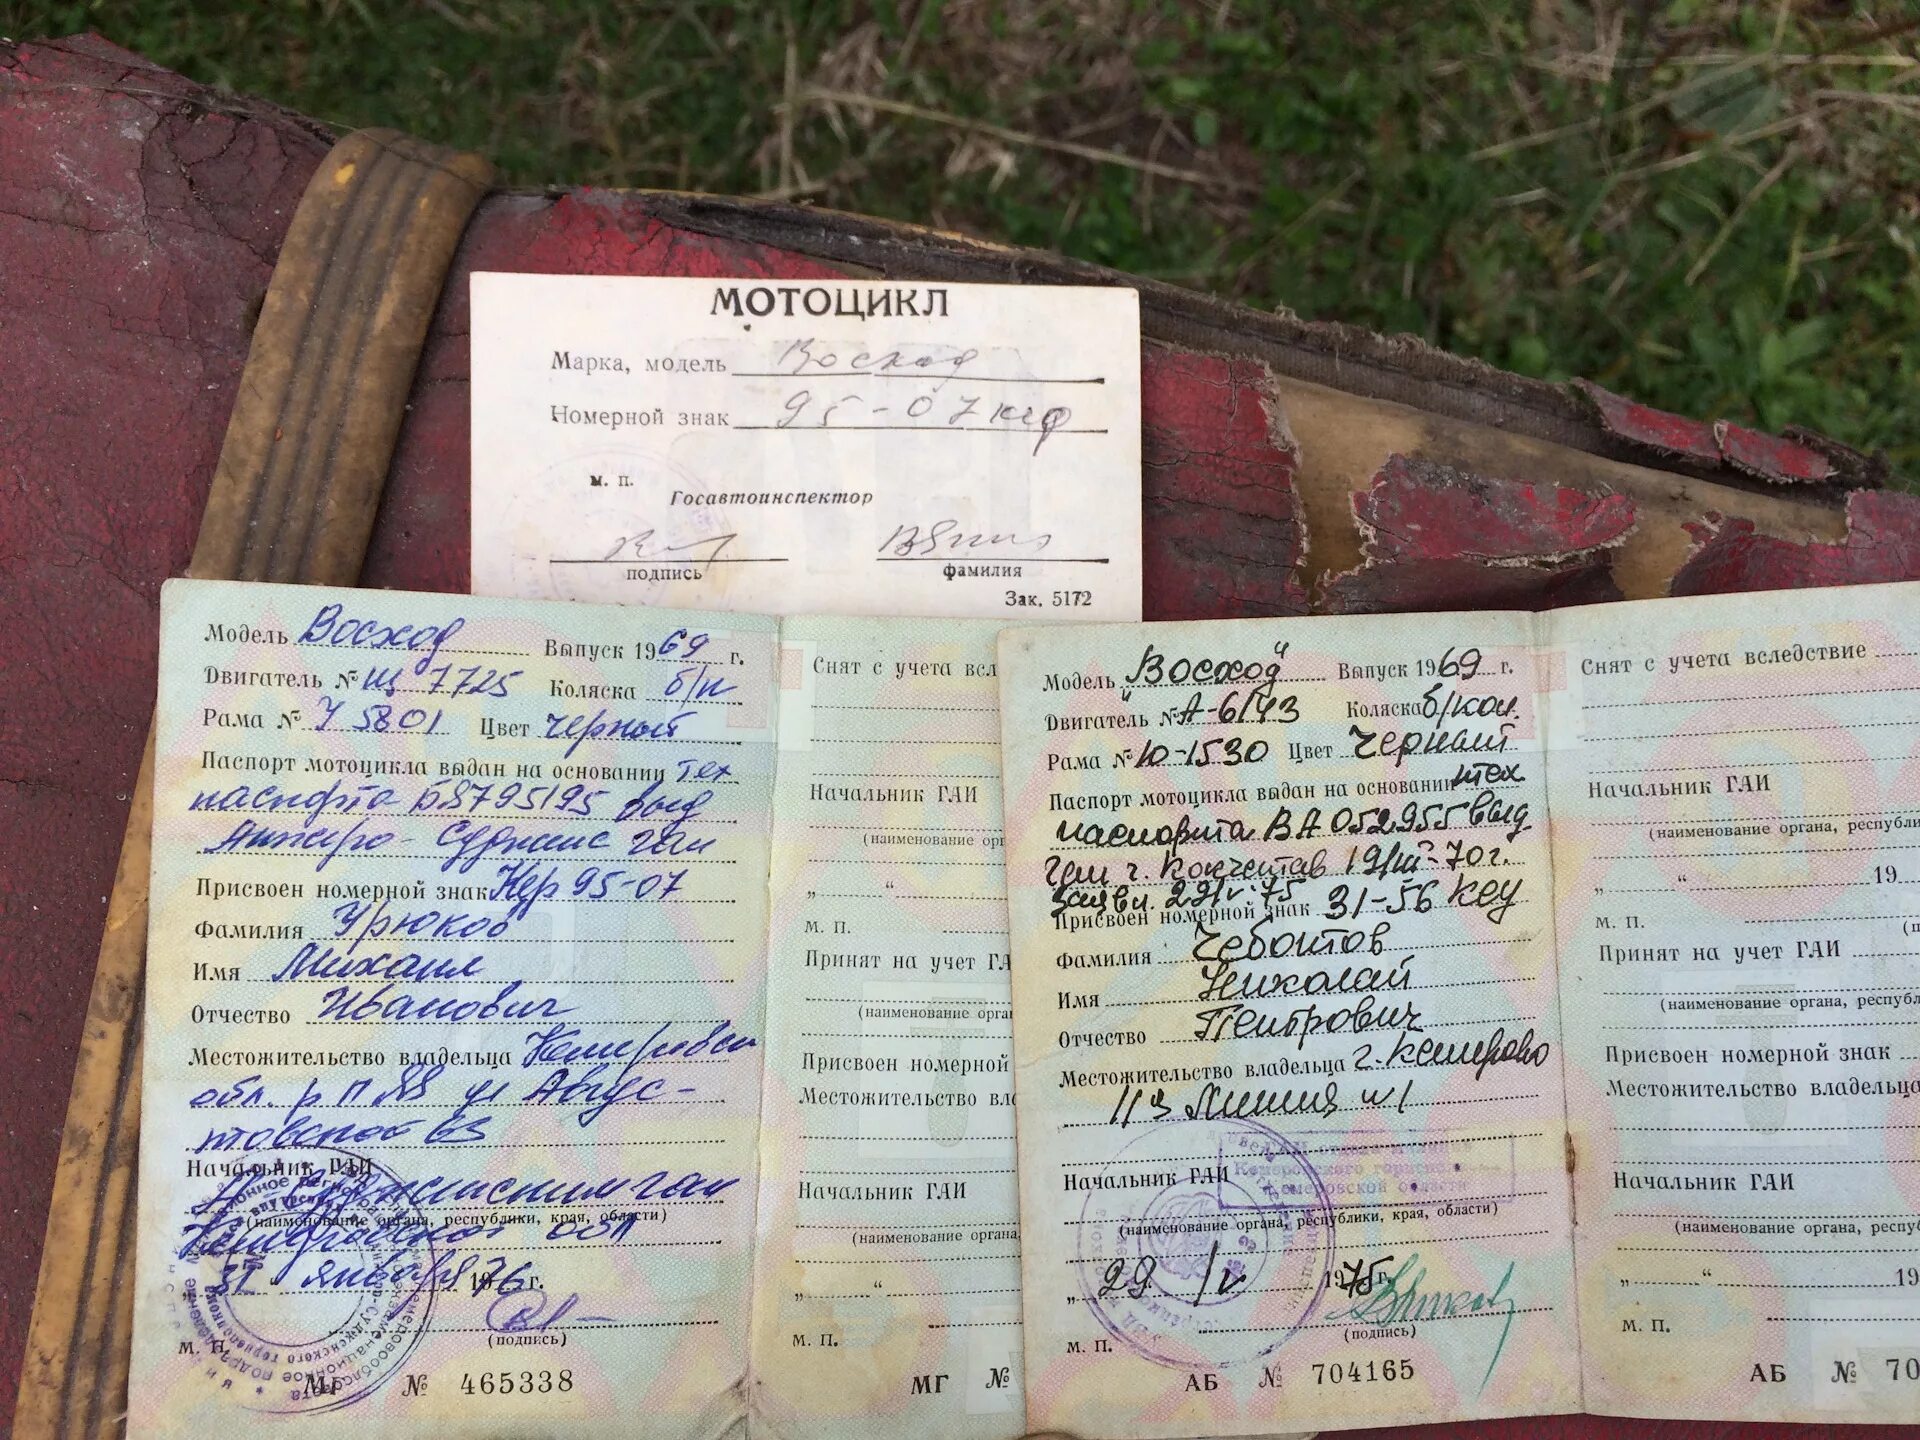 МОТОЦИКЛ
Марка, модель Восход
Номерной знак 95-07 кеф
м. п.
Госавтоинспектор
подпись фамилия
Зак. 5172
Модель Восход Выпуск 1969 г.
Двигатель № Щ 7725 Коляска б/к
Рама № У 5801 Цвет черный
Паспорт мотоцикла выдан на основании тех
паспорта Б8795195 выд
Анжеро-Суджанс гаи
Присвоен номерной знак 95-07
Фамилия Урюков
Имя Михаил
Отчество Иванович
Местожительство владельца Кемеровская
обл. р п ул Авгус-
товской 63
Начальник ГАИ
гаи
(наименование органа, республики, края, области)
Кемеровской обл
31 января 1976 г.
(подпись)
М. П.
МГ № 465338
Снят с учета всл
Начальник ГАИ
(наименование орг
„ “
М. П.
Принят на учет ГА
(наименование орга
Присвоен номерной
Местожительство вла
Начальник ГАИ
(наименование органа,
„ “
М. П.
МГ №
Модель "Восход" Выпуск 1969 г.
Двигатель № А-6143 Коляска б/кол.
Рама № 10-1530 Цвет Черный
Паспорт мотоцикла выдан на основании тех
паспорта ВА 052955 выд.
Гаи г. Кокчетав 19/III-70г.
Заявл. 29/V-75
Присвоен номерной знак 31-56 кеу
Фамилия Чеботов
Имя Николай
Отчество Петрович
Местожительство владельца г. Кемерово
Линия
Начальник ГАИ
(наименование органа, республики, края, области)
„29 V 1975 г.
(подпись)
М. П.
АБ № 704165
Снят с учета вследствие
Начальник ГАИ
(наименование органа, республи
„ “ 19
М. П.
Принят на учет ГАИ
(наименование органа, республ
Присвоен номерной знак
Местожительство владельца
Начальник ГАИ
(наименование органа, респуб
„ “ 19
М. П.
АБ № 70